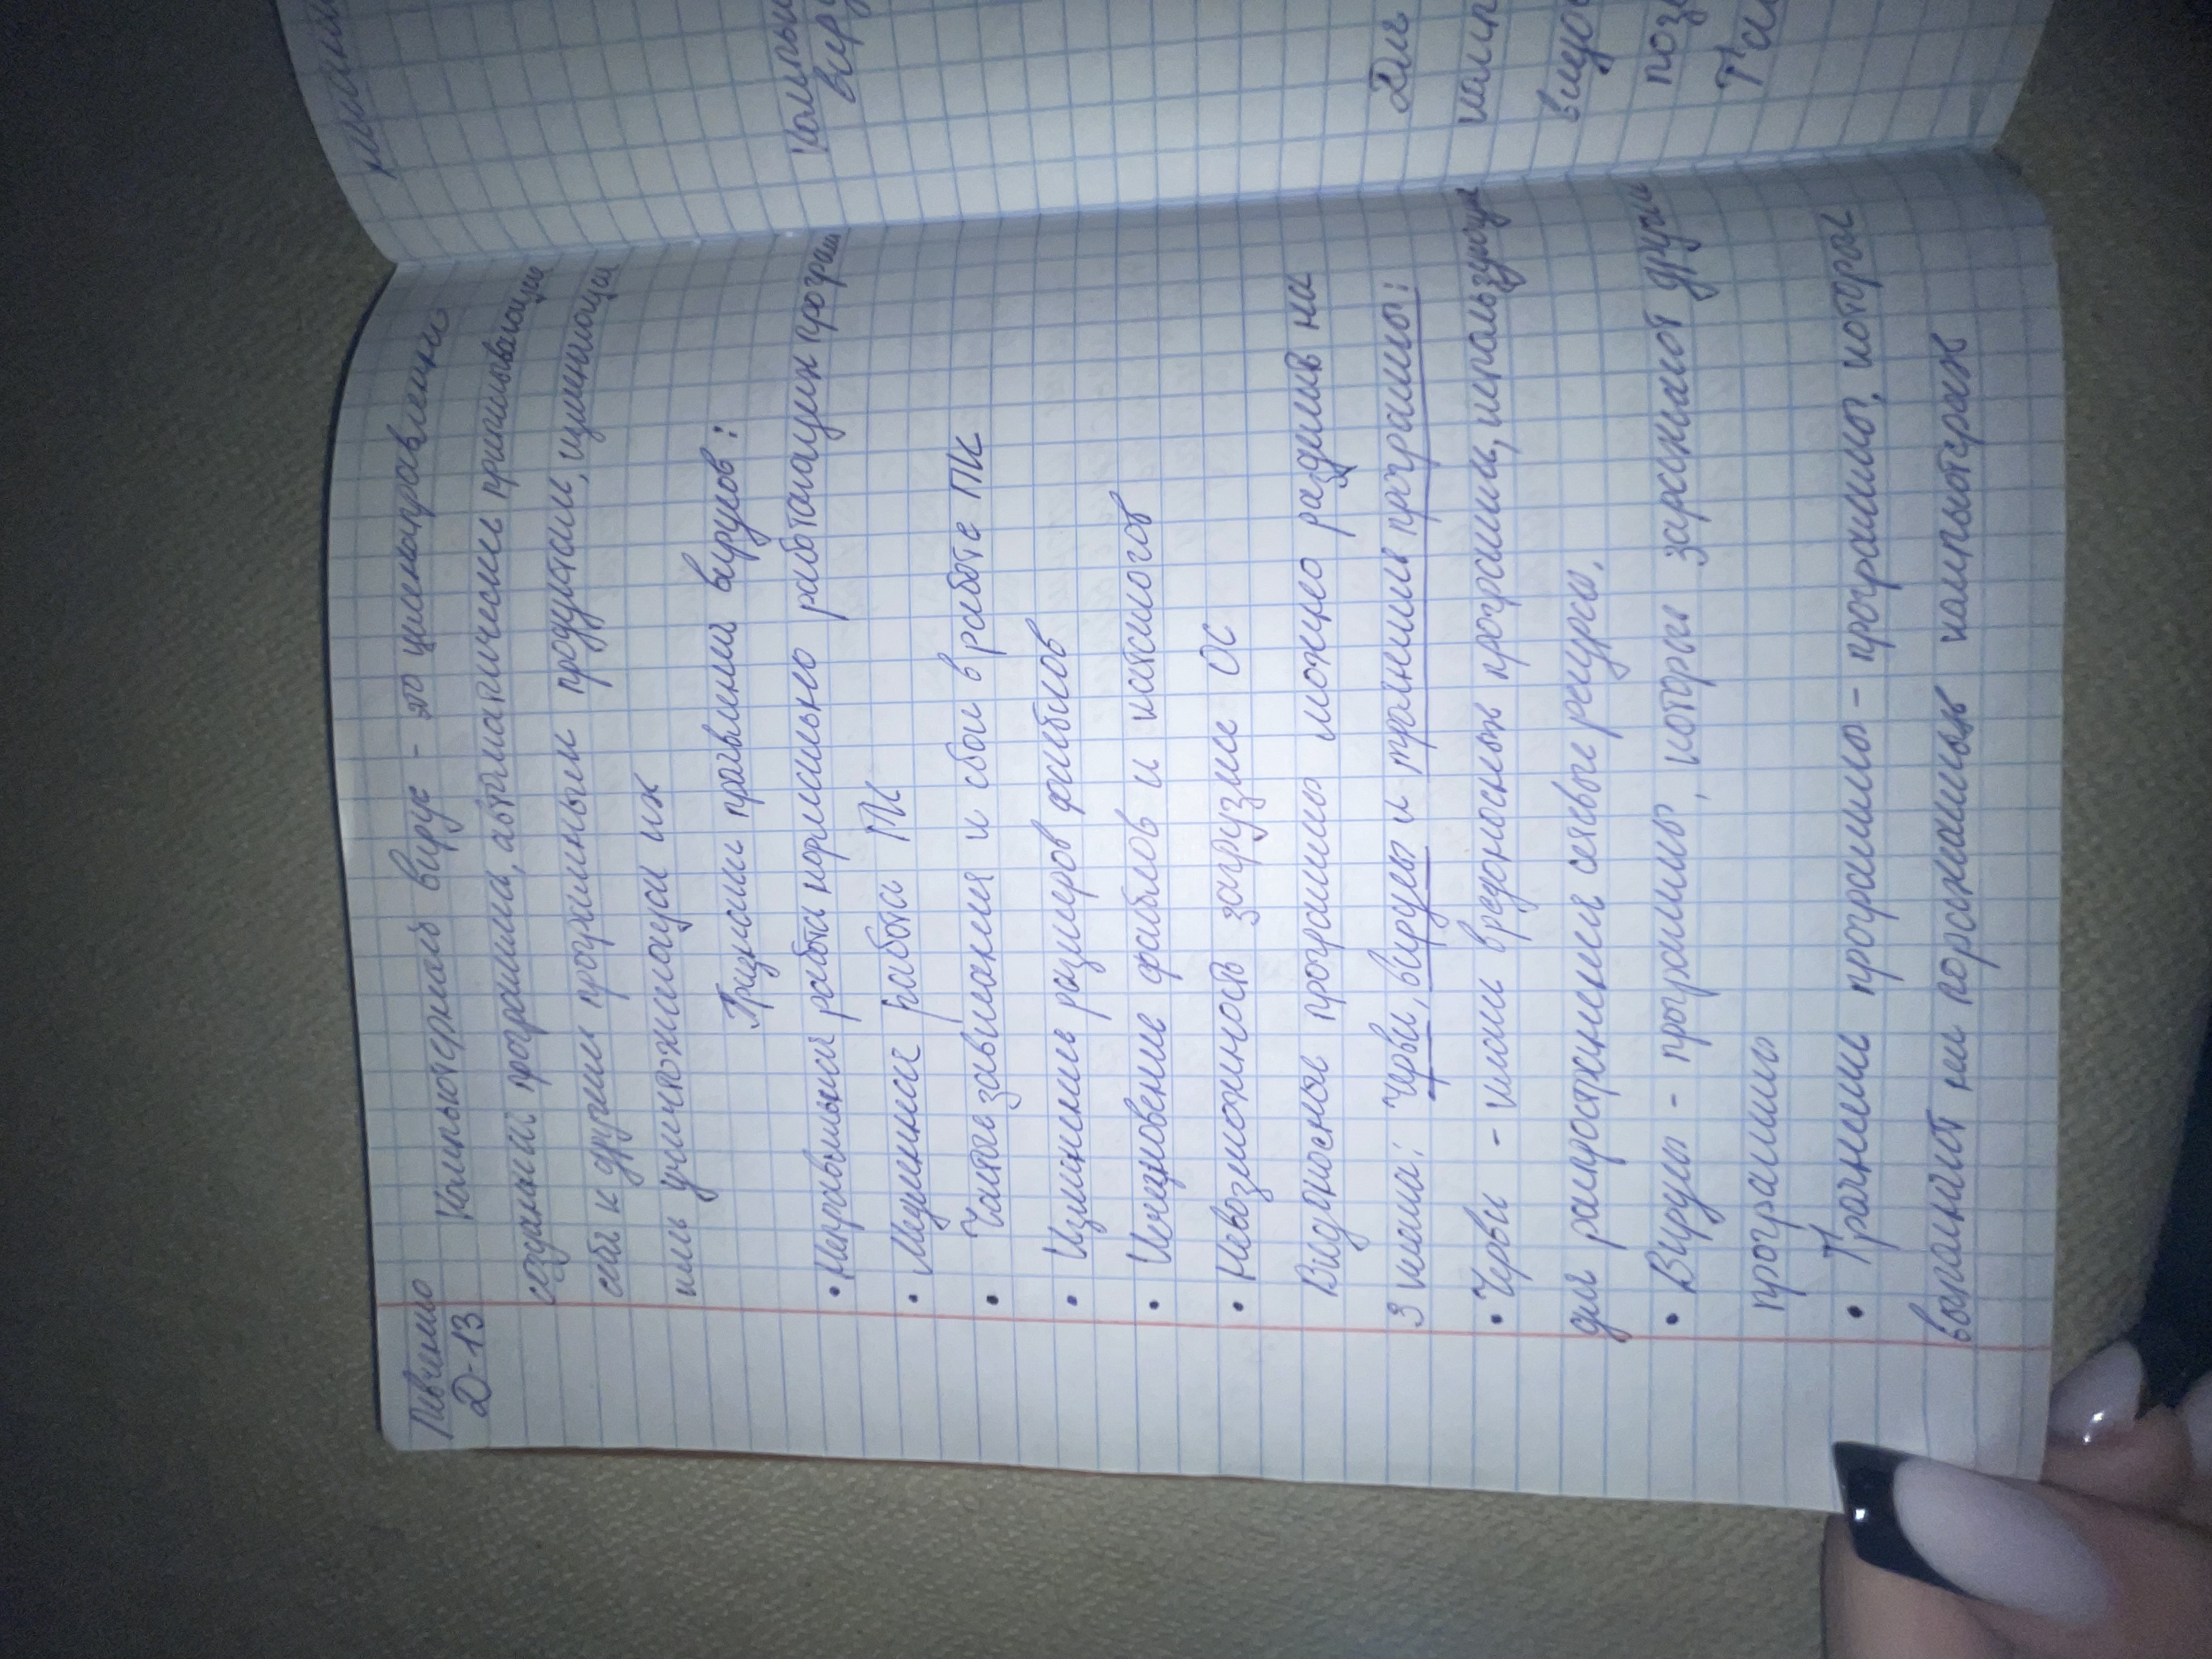 Левченко
Д-13
Компьютерный вирус - это целенаправленно
созданная программа, автоматически приписывающая
себя к другим программным продуктам, изменяющая
или уничтожающая их
Признаки проявления вирусов:
• Неправильная работа нормально работающих програм
• Медленная работа ПК
• Частые зависания и сбои в работе ПК
• Изменение размеров файлов
• Исчезновение файлов и каталогов
• Невозможность загрузки ОС
программы можно разделить на
3 класса: Черви, вирусы и троянские программы:
• Черви - класс вредоносных программ, использующая
для распространения сетевые ресурсы.
• Вирусы - программы, которые заражают другие
программы
• Троянские программы - программы, которые
на поражаемых компьютерах
Для
комп
видо
поз
Та